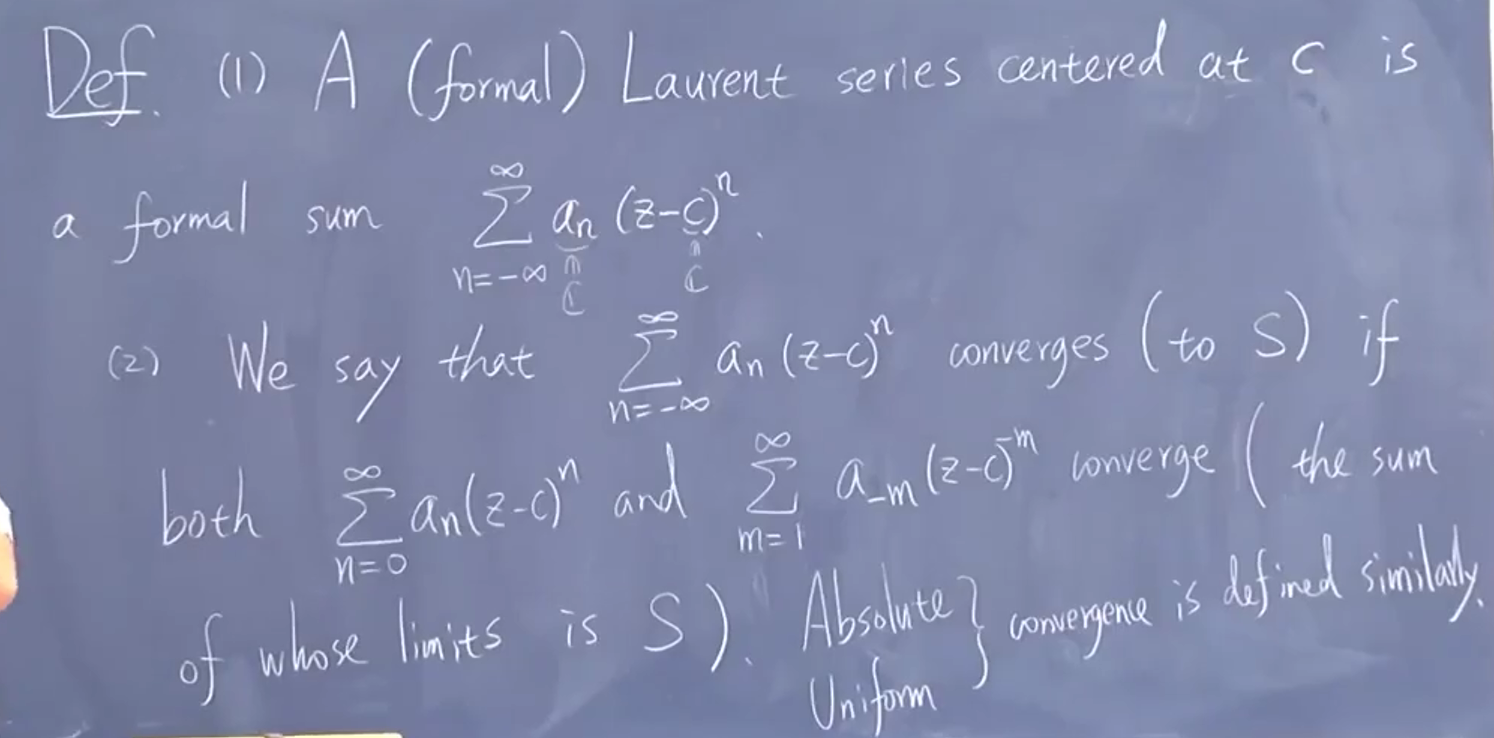 Def. (1) A (formal) Laurent series centered at c is
a formal sum $\sum_{n=-\infty}^{\infty} \underset{\underset{\mathbb{C}}{\cap}}{a_n} (z-\underset{\underset{\mathbb{C}}{\cap}}{c})^n$.
(2) We say that $\sum_{n=-\infty}^{\infty} a_n (z-c)^n$ converges (to S) if
both $\sum_{n=0}^{\infty} a_n (z-c)^n$ and $\sum_{m=1}^{\infty} a_{-m} (z-c)^{-m}$ converge ( the sum
of whose limits is S ). Absolute } convergence is defined similarly.
Uniform